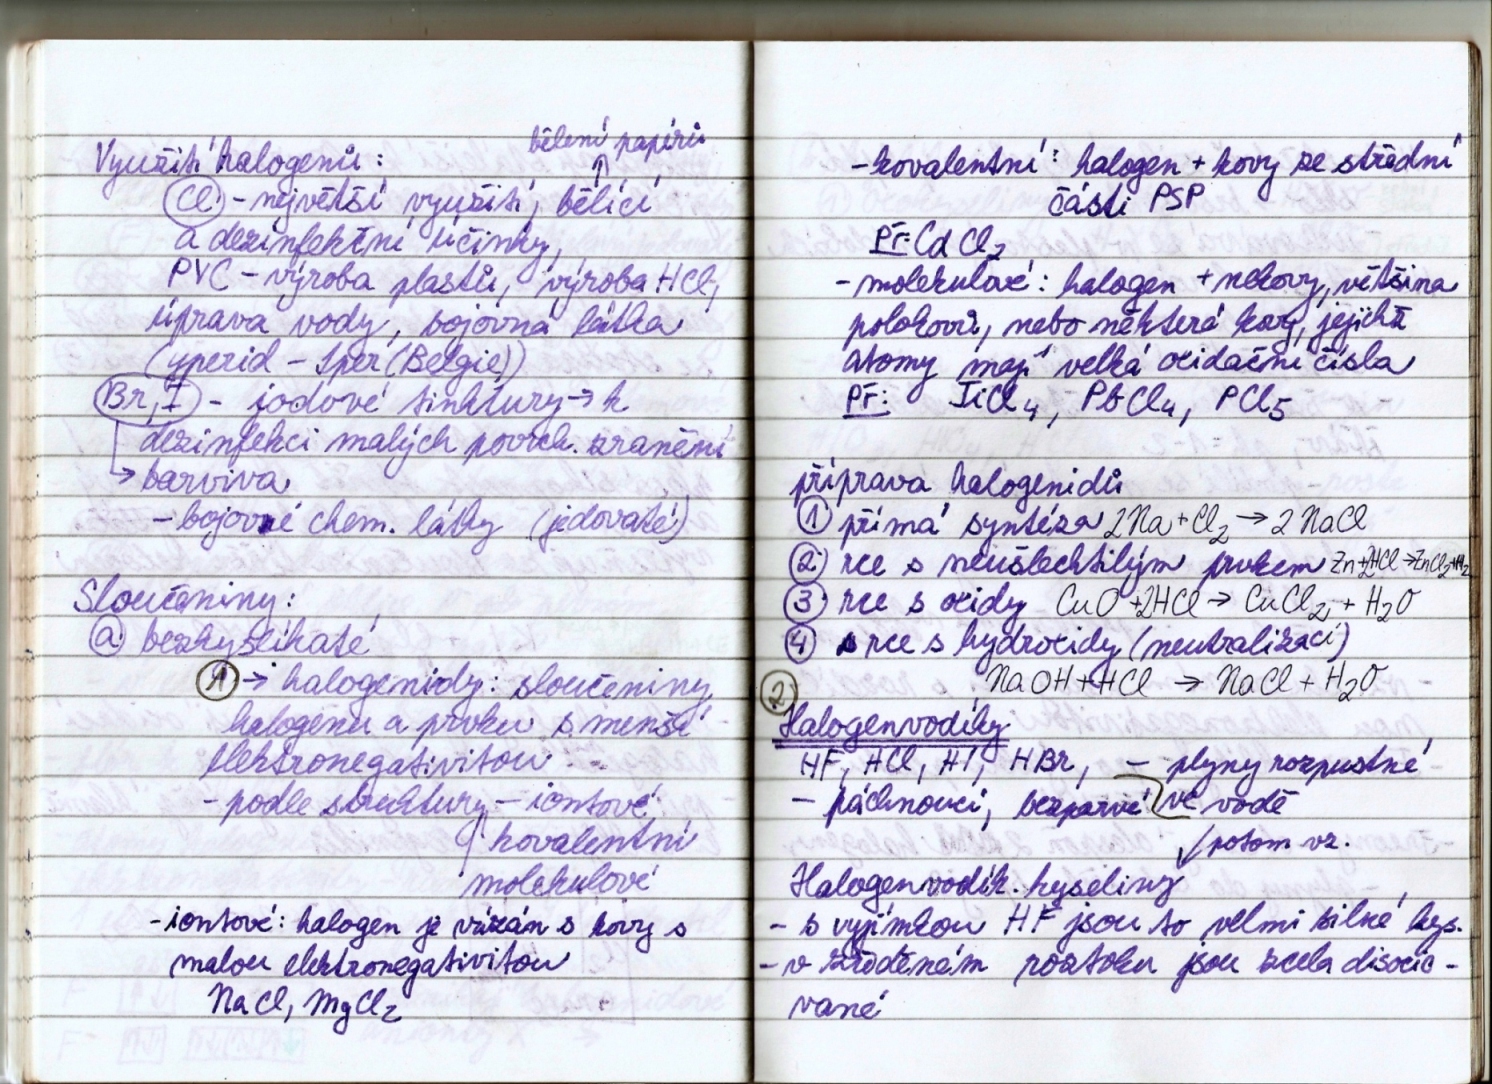 bělení papíru
Využití halogenů:
Cl - největší využití, bělící
↑
a dezinfekční účinky,
PVC - výroba plastů, výroba HCl,
úprava vody, bojovná látka
(yperid - Iper (Belgie))
Br, I - jodové tinktury → k
dezinfekci malých povrch. zranění
→ barviva
- bojovné chem. látky (jedovaté)
Sloučeniny:
a bezkyslíkaté
1 → halogenidy: sloučeniny
halogenu a prvku s menší
elektronegativitou
- podle struktury - iontové
kovalentní
molekulové
- iontové: halogen je vázán s kovy s
malou elektronegativitou
NaCl, MgCl2
- kovalentní: halogen + kovy ze střední
části PSP
Př: CdCl2
- molekulové: halogen + nekovy, většina
polokovů, nebo některé kovy, jejichž
atomy mají velká oxidační čísla
Př: TiCl4, PbCl4, PCl5
příprava halogenidů
1 přímá syntéza 2Na + Cl2 → 2NaCl
2 rce s neušlechtilým prvkem Zn+2HCl→ZnCl2+H2
3 rce s oxidy CuO + 2HCl → CuCl2 + H2O
4 rce s hydroxidy (neutralizací)
NaOH + HCl → NaCl + H2O
2
Halogenvodíky
HF, HCl, HI, HBr, - plyny rozpustné
- páchnoucí, bezbarvé ve vodě
↙ potom vz.
Halogenvodík. kyseliny
- s výjimkou HF jsou to velmi silné kys.
- v zředěném roztoku jsou zcela disocio-
vané